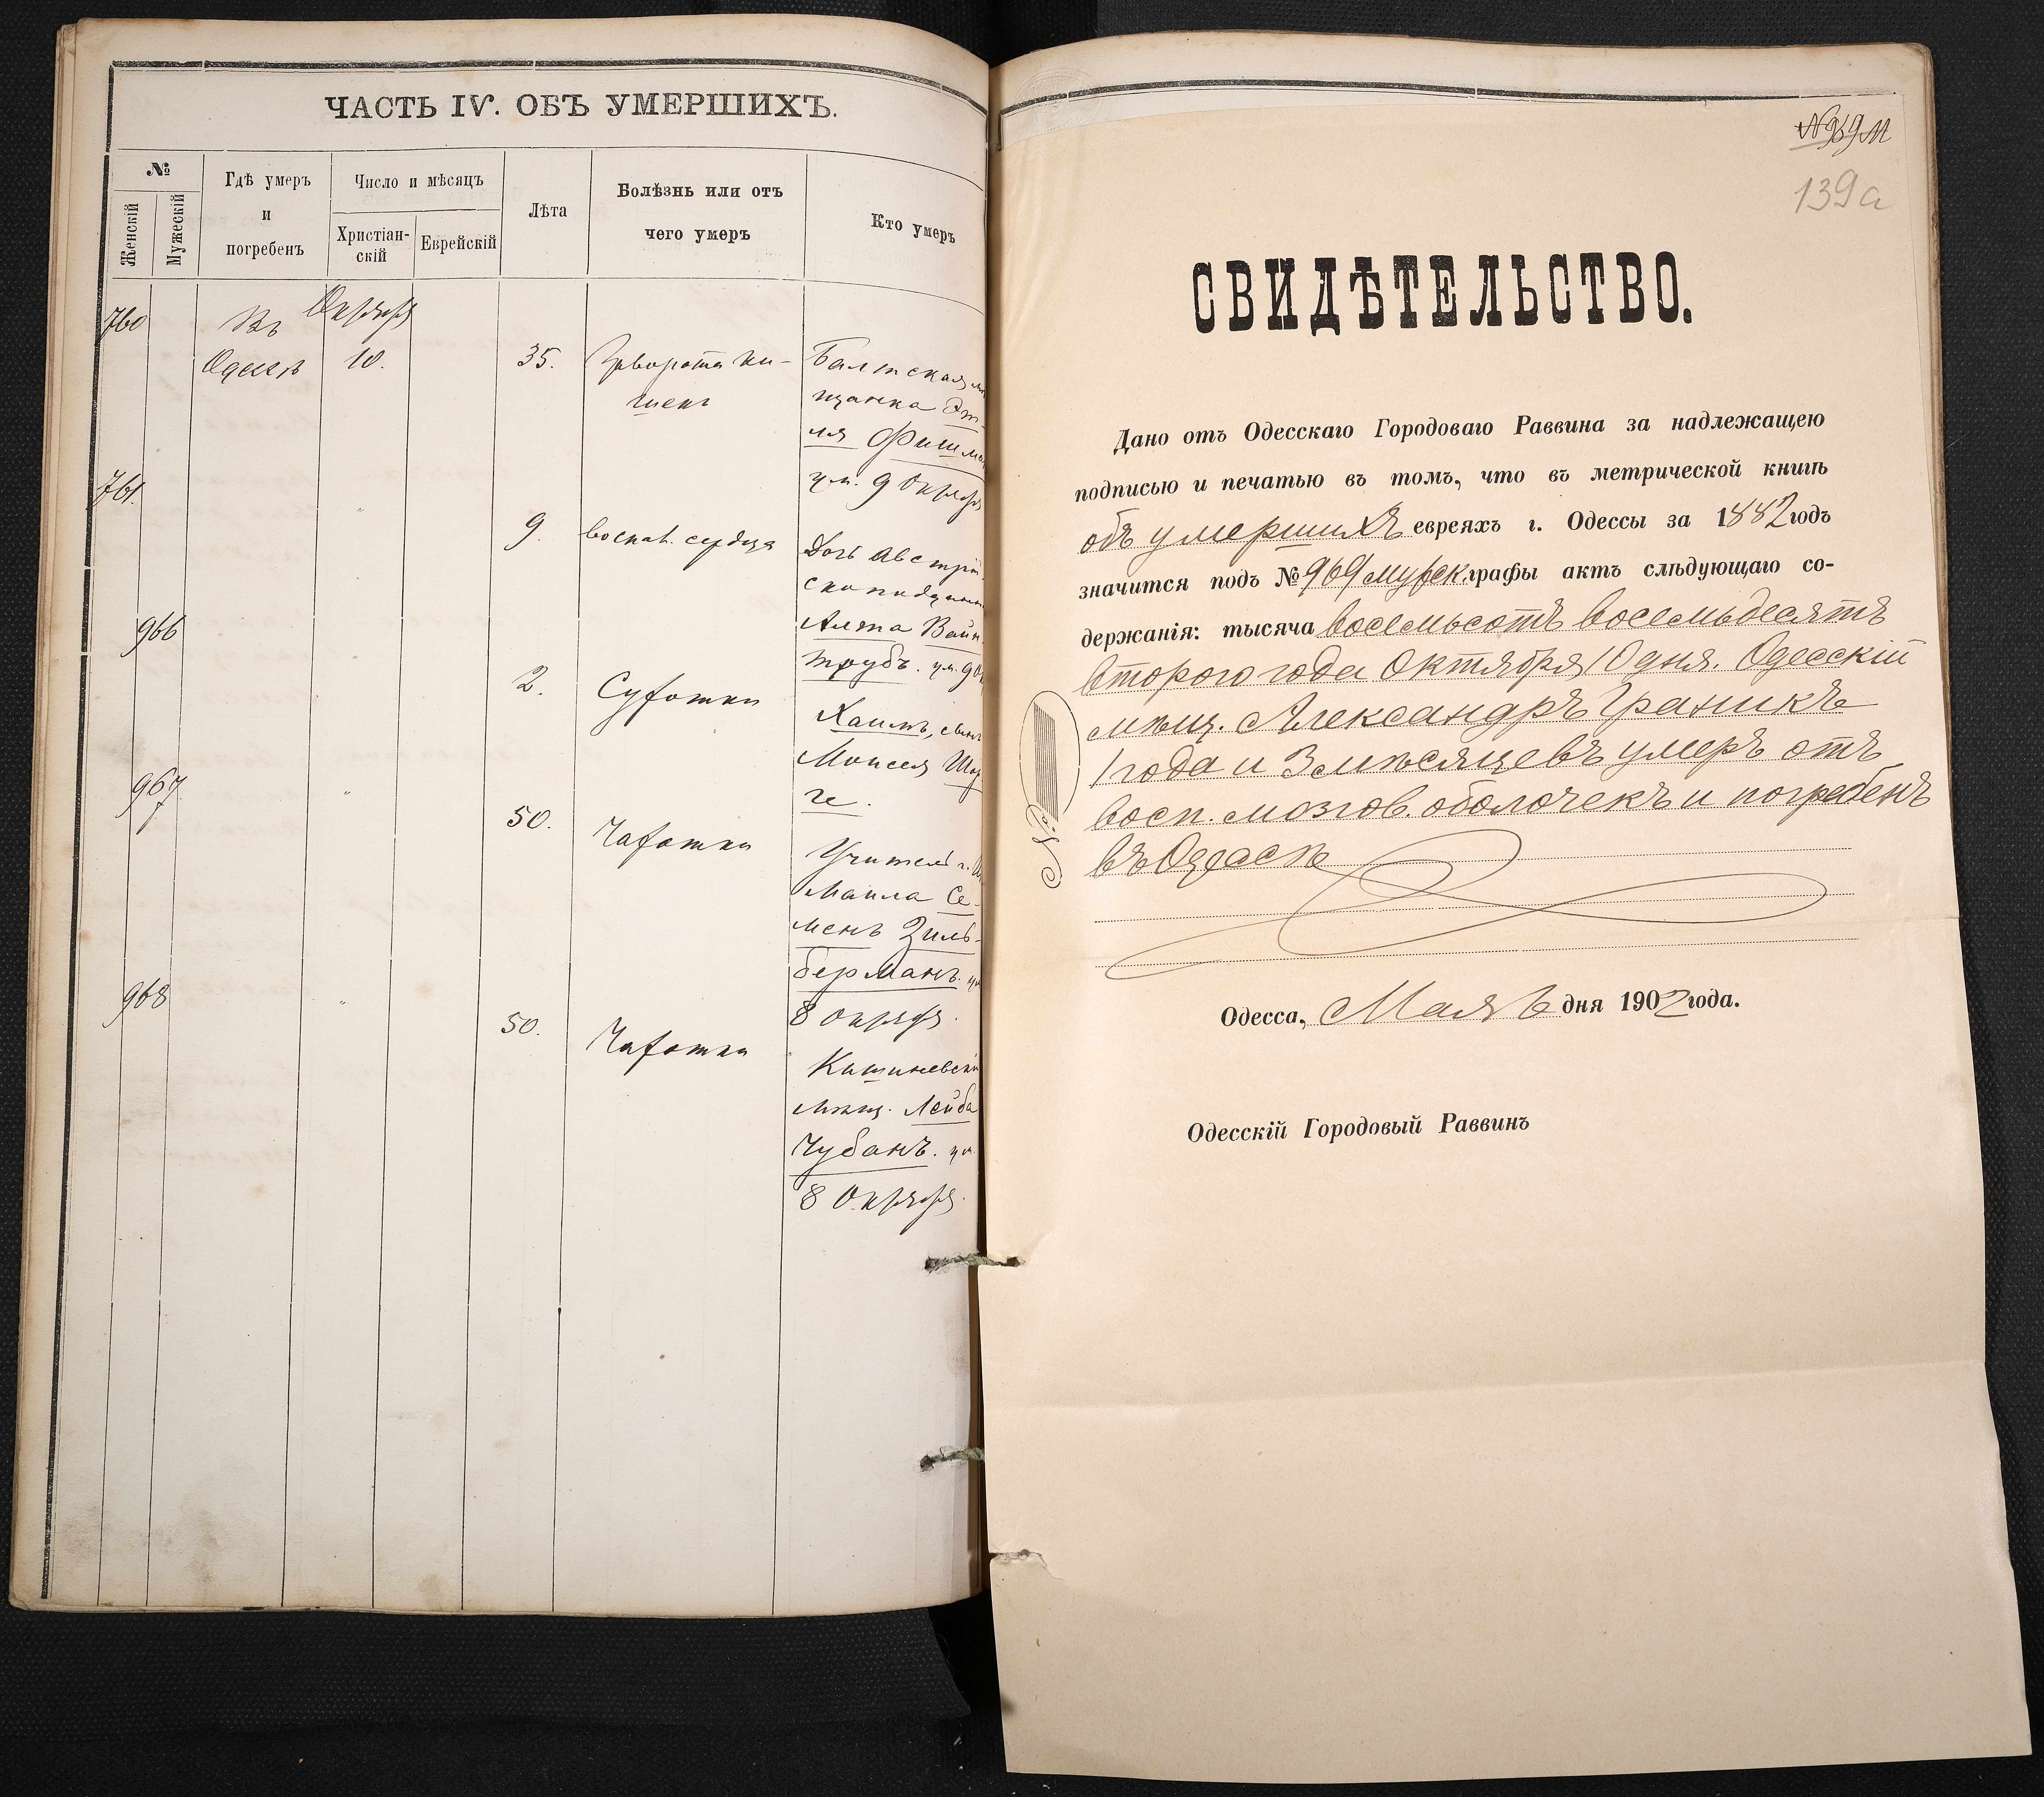 ЧАСТЬ IV. ОБЪ УМЕРШИХЪ.
№
Женскій
Мужескій
Гдѣ умеръ
и
погребенъ
Число и мѣсяцъ
Христіан-
скій
Еврейскій
Лѣта
Болѣзнь или отъ
чего умеръ
Кто умеръ
760
Въ
Одессѣ
Октября
10.
35.
Заворотъ ки-
шекъ
Балтская
щанка Эт-
ля Фишма
ум. 9 Октября
761.
"
9.
воспал. сердца
Дочь Австрій-
ско поддан
Вайн-
трубъ. ум. 9
966
"
2.
Сухотка
Хаимъ, сынъ
Моисея
ге.
967
"
50.
Чахотка
Учитель г. И
маила Се-
менъ Зиль-
берманъ. ум
8 Октября.
968
"
50.
Чахотка
Кишиневскій
мѣщ. Лейба
Чубанъ. ум.
8 Октября.
№ 969 М
139а
СВИДѢТЕЛЬСТВО.
Дано отъ Одесскаго Городоваго Раввина за надлежащею
подписью и печатью въ томъ, что въ метрической книгѣ
объ умершихъ евреяхъ г. Одессы за 1882 годъ
значится подъ № 969 мужск. графы актъ слѣдующаго со-
держанія: тысяча восемьсотъ восемьдесятъ
второго года Октября 10 дня. Одесскій
мѣщ. Александръ Граникъ
1 года и 3 мѣсяцевъ умеръ отъ
восп. мозгов. оболочекъ и погребенъ
въ Одессѣ
№
Одесса, Мая 6 дня 1902 года.
Одесскій Городовый Раввинъ